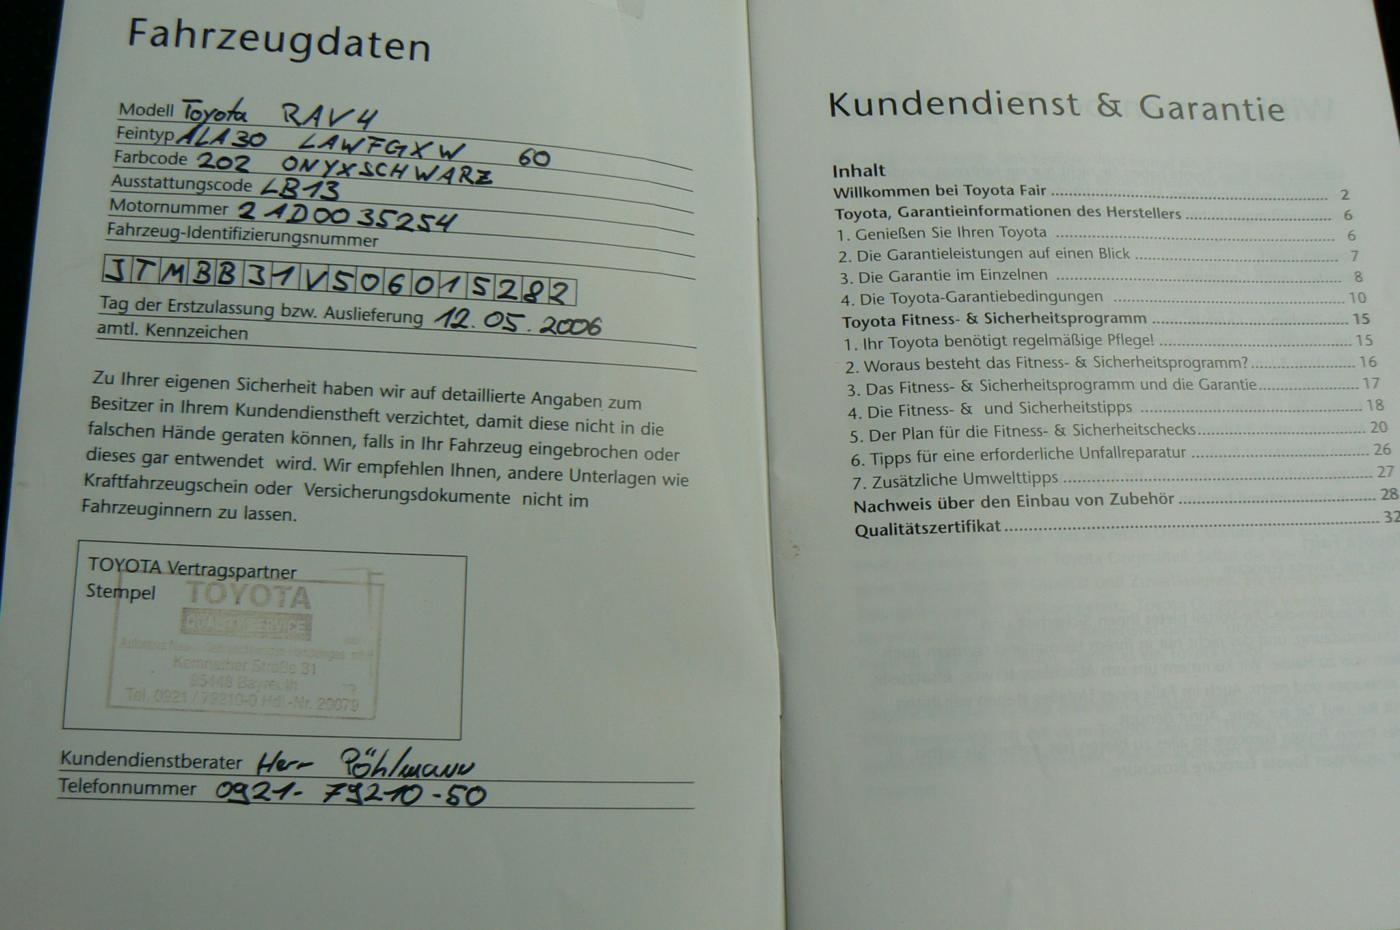 Fahrzeugdaten
Modell Toyota RAV4
Feintyp ALA30 LAWFGXW 60
Farbcode 202 ONYXSCHWARZ
Ausstattungscode LB13
Motornummer 2AD0035254
Fahrzeug-Identifizierungsnummer
JTMBB31V506015282
Tag der Erstzulassung bzw. Auslieferung 12.05.2006
amtl. Kennzeichen
Zu Ihrer eigenen Sicherheit haben wir auf detaillierte Angaben zum
Besitzer in Ihrem Kundendienstheft verzichtet, damit diese nicht in die
falschen Hände geraten können, falls in Ihr Fahrzeug eingebrochen oder
dieses gar entwendet wird. Wir empfehlen Ihnen, andere Unterlagen wie
Kraftfahrzeugschein oder Versicherungsdokumente nicht im
Fahrzeuginnern zu lassen.
TOYOTA Vertragspartner
Stempel
TOYOTA
QUALITY SERVICE
Kemnather Straße 31
95448 Bayreuth
Tel. 0921 / 79210-0 Hdl.-Nr. 29079
Kundendienstberater Herr Pöhlmann
Telefonnummer 0921-79210-50
Kundendienst & Garantie
Inhalt
Willkommen bei Toyota Fair 2
Toyota, Garantieinformationen des Herstellers 6
1. Genießen Sie Ihren Toyota 6
2. Die Garantieleistungen auf einen Blick 7
3. Die Garantie im Einzelnen 8
4. Die Toyota-Garantiebedingungen 10
Toyota Fitness- & Sicherheitsprogramm 15
1. Ihr Toyota benötigt regelmäßige Pflege! 15
2. Woraus besteht das Fitness- & Sicherheitsprogramm? 16
3. Das Fitness- & Sicherheitsprogramm und die Garantie 17
4. Die Fitness- & und Sicherheitstipps 18
5. Der Plan für die Fitness- & Sicherheitschecks 20
6. Tipps für eine erforderliche Unfallreparatur 26
7. Zusätzliche Umwelttipps 27
Nachweis über den Einbau von Zubehör 28
Qualitätszertifikat 32